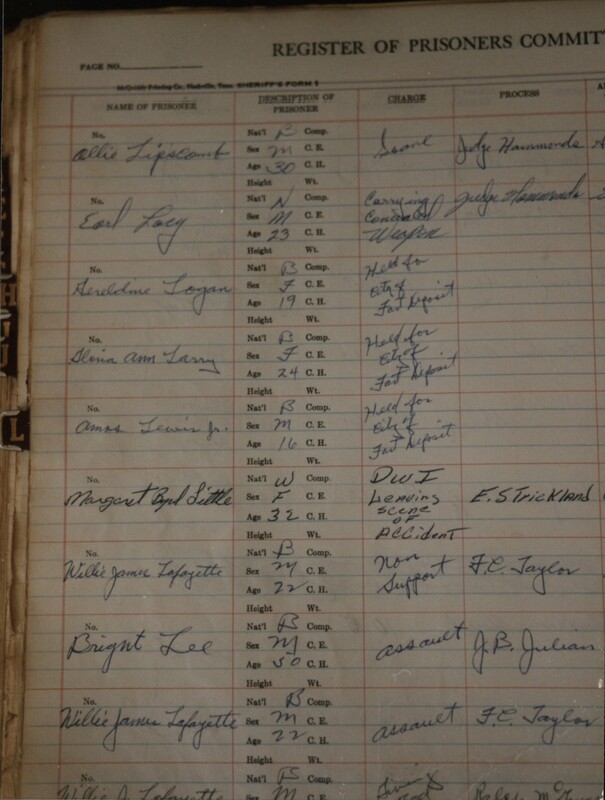 PAGE NO.
REGISTER OF PRISONERS COMMIT
McQuiddy Printing Co., Nashville, Tenn. SHERIFF'S FORM 1
NAME OF PRISONER DESCRIPTION OF PRISONER CHARGE PROCESS
No. Nat'l B Comp.
Ollie Lipscomb Sex M C. E. Judge Hammonds
Age 30 C. H.
Height Wt.
No. Nat'l N Comp. Carrying Judge Hammonds
Earl Lacy Sex M C. E. Concealed
Age 23 C. H. Weapon
Height Wt.
No. Nat'l B Comp. Held for
Geraldine Logan Sex F C. E. City of
Age 19 C. H. Fort Deposit
Height Wt.
No. Nat'l B Comp. Held for
Ann Larry Sex F C. E. City of
Age 24 C. H. Fort Deposit
Height Wt.
No. Nat'l B Comp. Held for
Amos Lewis Jr. Sex M C. E. City of
Age 16 C. H. Fort Deposit
Height Wt.
No. Nat'l W Comp. DWI
Margaret Byrd Little Sex F C. E. Leaving E. Strickland
Age 32 C. H. scene
OF
Height Wt. Accident
No. Nat'l B Comp. Non
Willie James Lafayette Sex M C. E. Support F.C. Taylor
Age 22 C. H.
Height Wt.
No. Nat'l B Comp.
Bright Lee Sex M C. E. assault J.B. Julian
Age 50 C. H.
Height Wt.
No. Nat'l B Comp.
Willie James Lafayette Sex M C. E. assault F.C. Taylor
Age 22 C. H.
Height Wt.
No. Nat'l B Comp.
Willie J. Lafayette Sex M C. E.
H
U
L